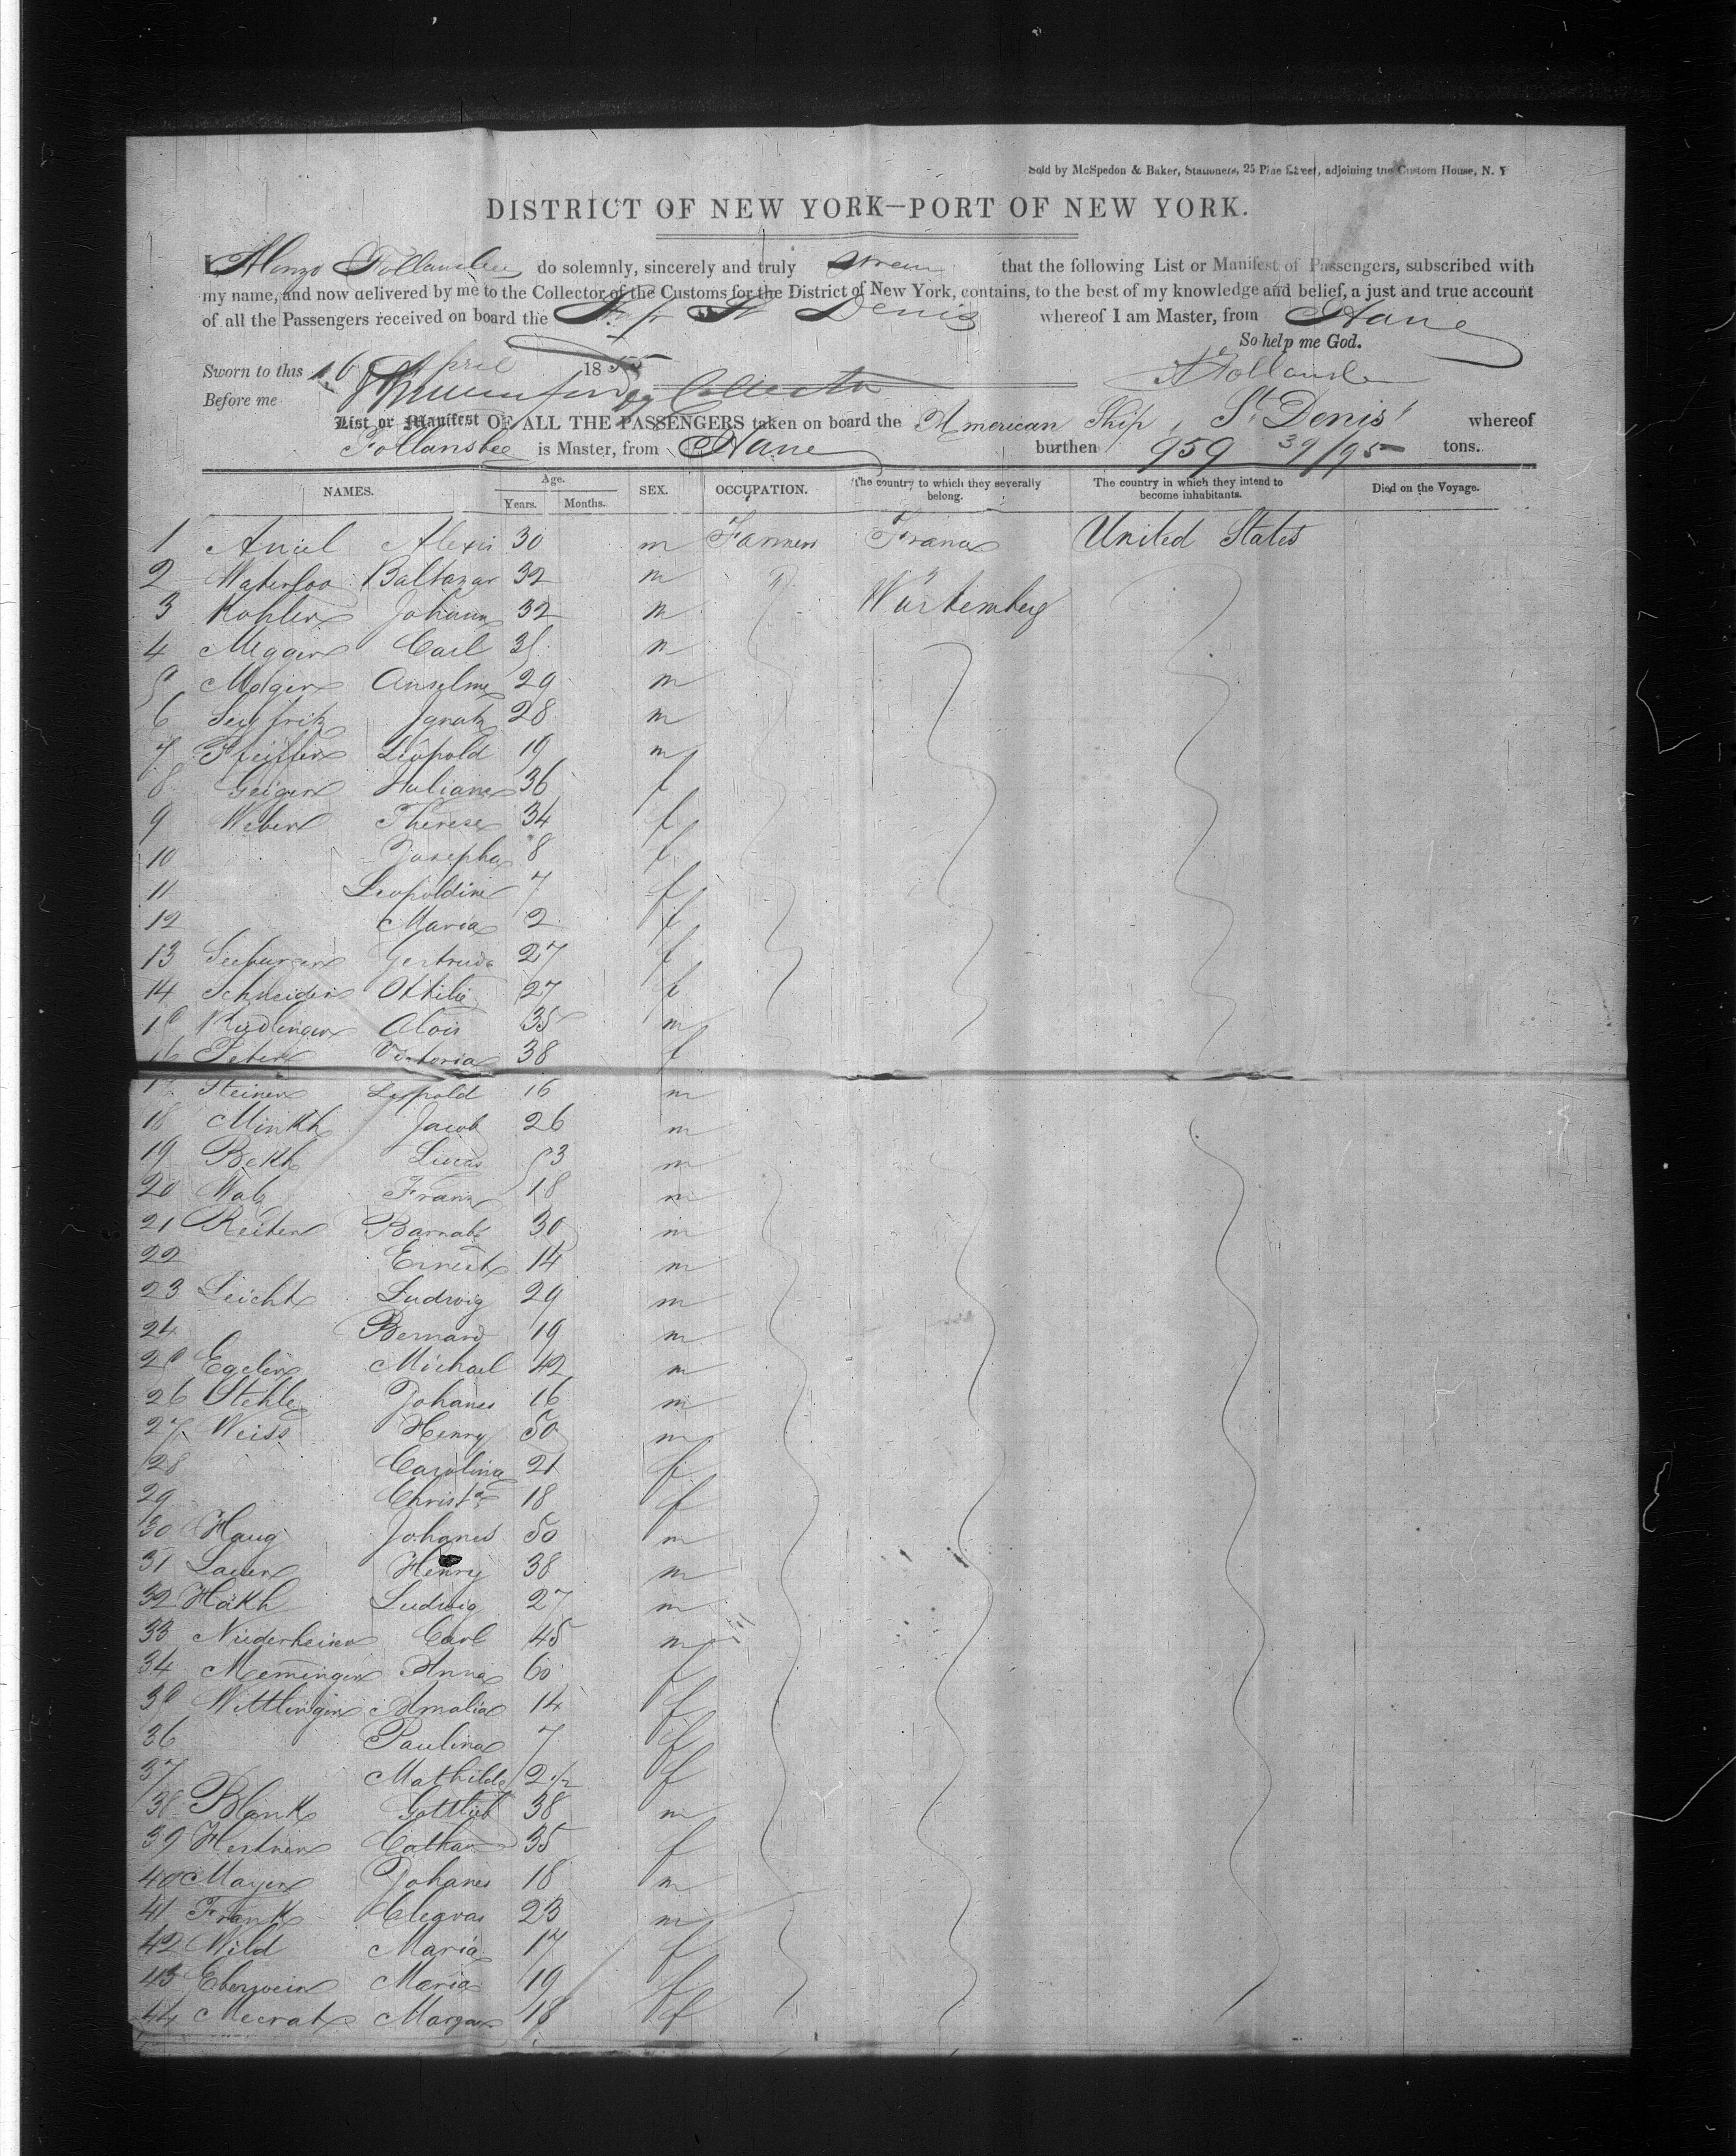 Sold by McSpedon & Baker, Stationers, 25 Pine Street, adjoining the Custom House, N. Y
DISTRICT OF NEW YORK—PORT OF NEW YORK.
I Alonzo Follansbee do solemnly, sincerely and truly swear that the following List or Manifest of Passengers, subscribed with
my name, and now delivered by me to the Collector of the Customs for the District of New York, contains, to the best of my knowledge and belief, a just and true account
of all the Passengers received on board the Ship St Denis whereof I am Master, from Havre
So help me God.
Sworn to this 16 April 1855
A Follansbee
Before me Dy Collector
List or Manifest OF ALL THE PASSENGERS taken on board the American Ship St Denis whereof
Follansbee is Master, from Havre burthen 959 39/95 tons.
NAMES. Age. Years. Months. SEX. OCCUPATION. The country to which they severally belong. The country in which they intend to become inhabitants. Died on the Voyage.
1 Aniel Alexis 30 m Farmer France United States
2 Waterloo Baltazar 32 m " "
3 Kohler Johann 32 m Würtemberg
4 Megger Carl 35 m
5 Mdger Anselme 29 m
6 Seyfritz Ignatz 28 m
7 Pfeiffer Leopold 19 m
8 Geiger Juliane 36 f
9 Weber Therese 34 f
10 Josepha 8 f
11 Leopoldine 7 f
12 Maria 2 f
13 Seeburger Gertruda 27 f
14 Schneider Ottilie 27 f
15 Riedlinger Alois 35 m
16 Peter Victoria 38 f
17 Steiner Leopold 16 m
18 Minkh Jacob 26 m
19 Bekh Lucas 53 m
20 Walz Franz 18 m
21 Reiter Barnabé 30 m
22 Ernest 14 m
23 Leicht Ludwig 29 m
24 Bernard 19 m
25 Egeler Michael 42 m
26 Stehle Johanes 16 m
27 Weiss Henry 50 m
28 Carolina 21 f
29 Christ.a 18 f
30 Haug Johanes 50 m
31 Lauer Henry 38 m
32 Häkh Ludwig 27 m
33 Niederheiser Carl 45 m
34 Memminger Anna 60 f
35 Wittlinger Amalia 14 f
36 Paulina 7 f
37 Mathilde 2 1/2 f
38 Blank Gottlieb 38 m
39 Hertner Cathar 35 f
40 Mayer Johanes 18 m
41 Frank 23 m
42 Wild Maria 17 f
43 Eberwein Maria 19 f
44 Mecrat Margar 18 f